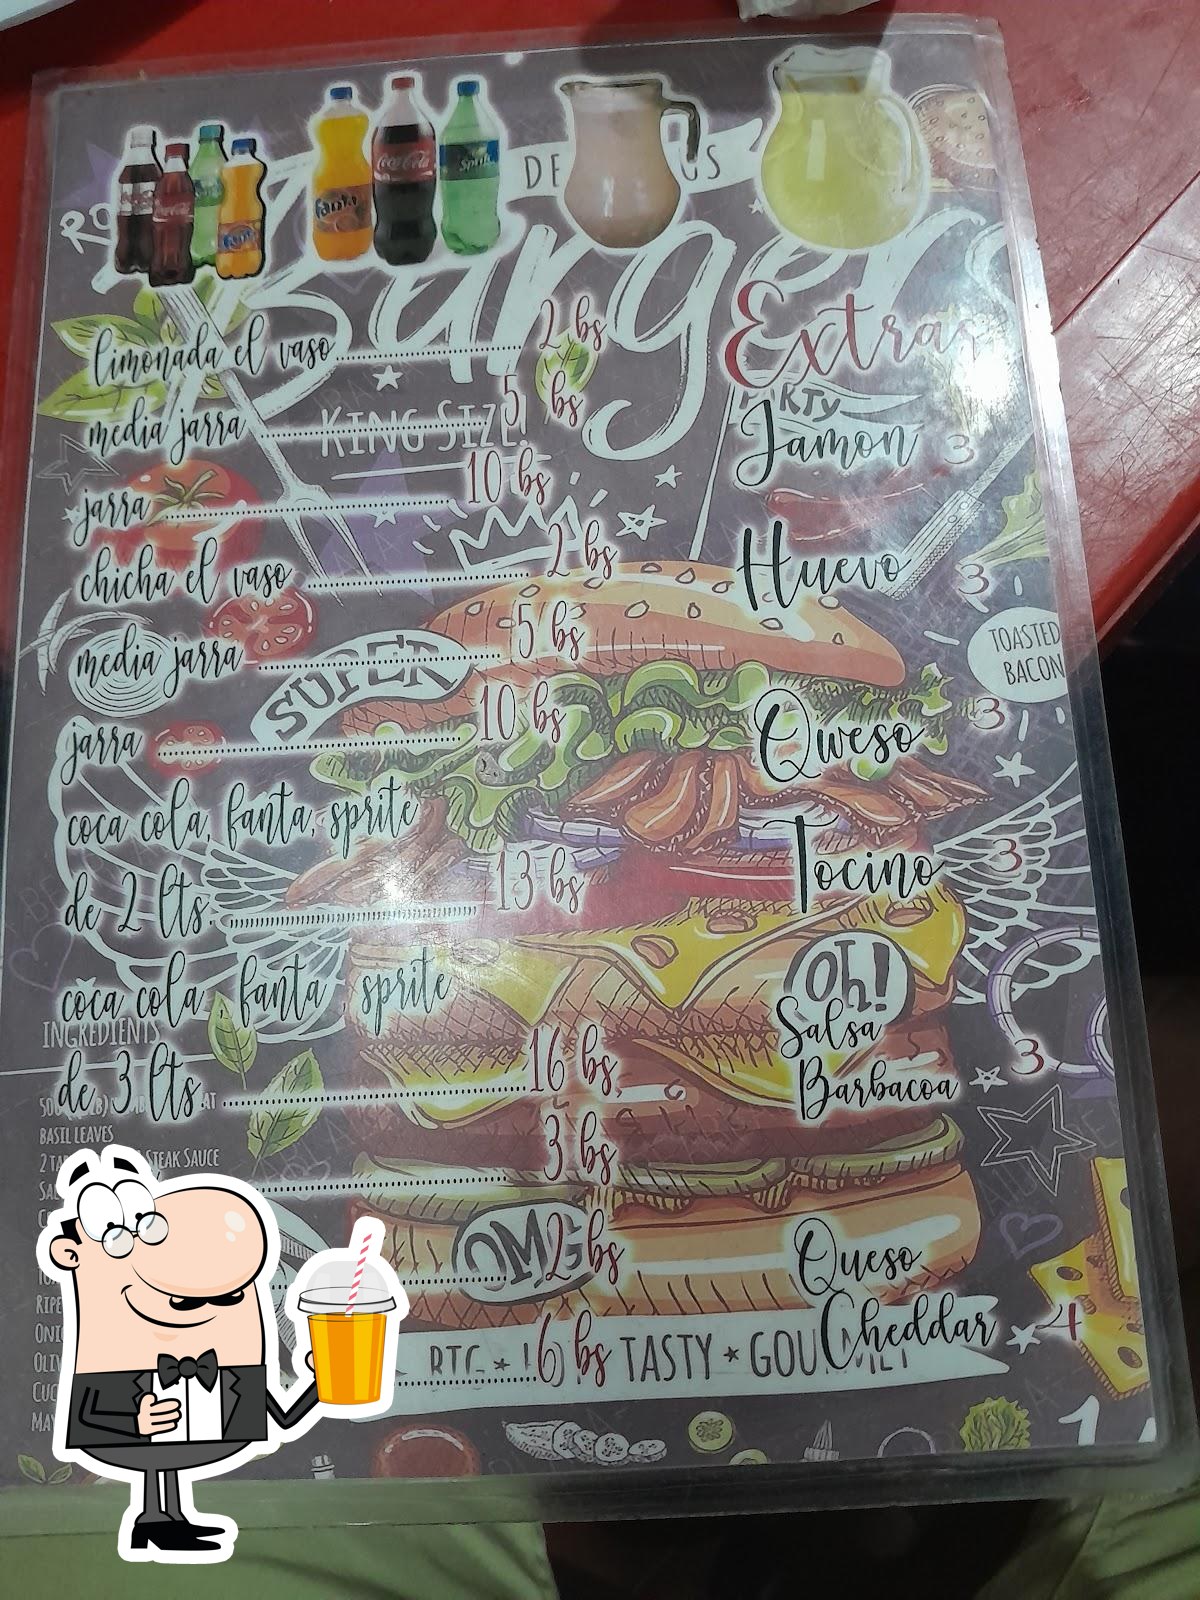 DE
US
Burgers
limonada el vaso 2 bs
media jarra 5 bs
KING SIZE!
jarra 10 bs
chicha el vaso 2 bs
media jarra 5 bs
SUPER
jarra 10 bs
coca cola, fanta, sprite
de 2 lts 13 bs
coca cola, fanta sprite
de 3 lts 16 bs
3 bs
2 bs
6 bs
Extras
PARTY
Jamon 3
Huevo 3
TOASTED
BACON
Qweso 3
Tocino 3
Oh!
Salsa
Barbacoa 3
Queso
Cheddar 4
OMG
BIG * TASTY * GOURMET
INGREDIENTS
BASIL LEAVES
STEAK SAUCE
Coca-Cola
Fanta
Sprite